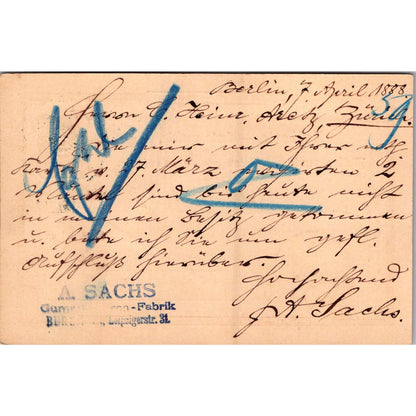 Berlin, 7 April 1888
Herrn C. Heinr. Zürich.
Die mir mit Ihrer
Karte v. 17. März 2
sind bis heute nicht
in meinen Besitz gekommen
u. bitte ich Sie um gefl.
Aufschluß hierüber.
Hochachtend
A. Sachs.
A. SACHS
-Fabrik
Leipzigerstr. 31